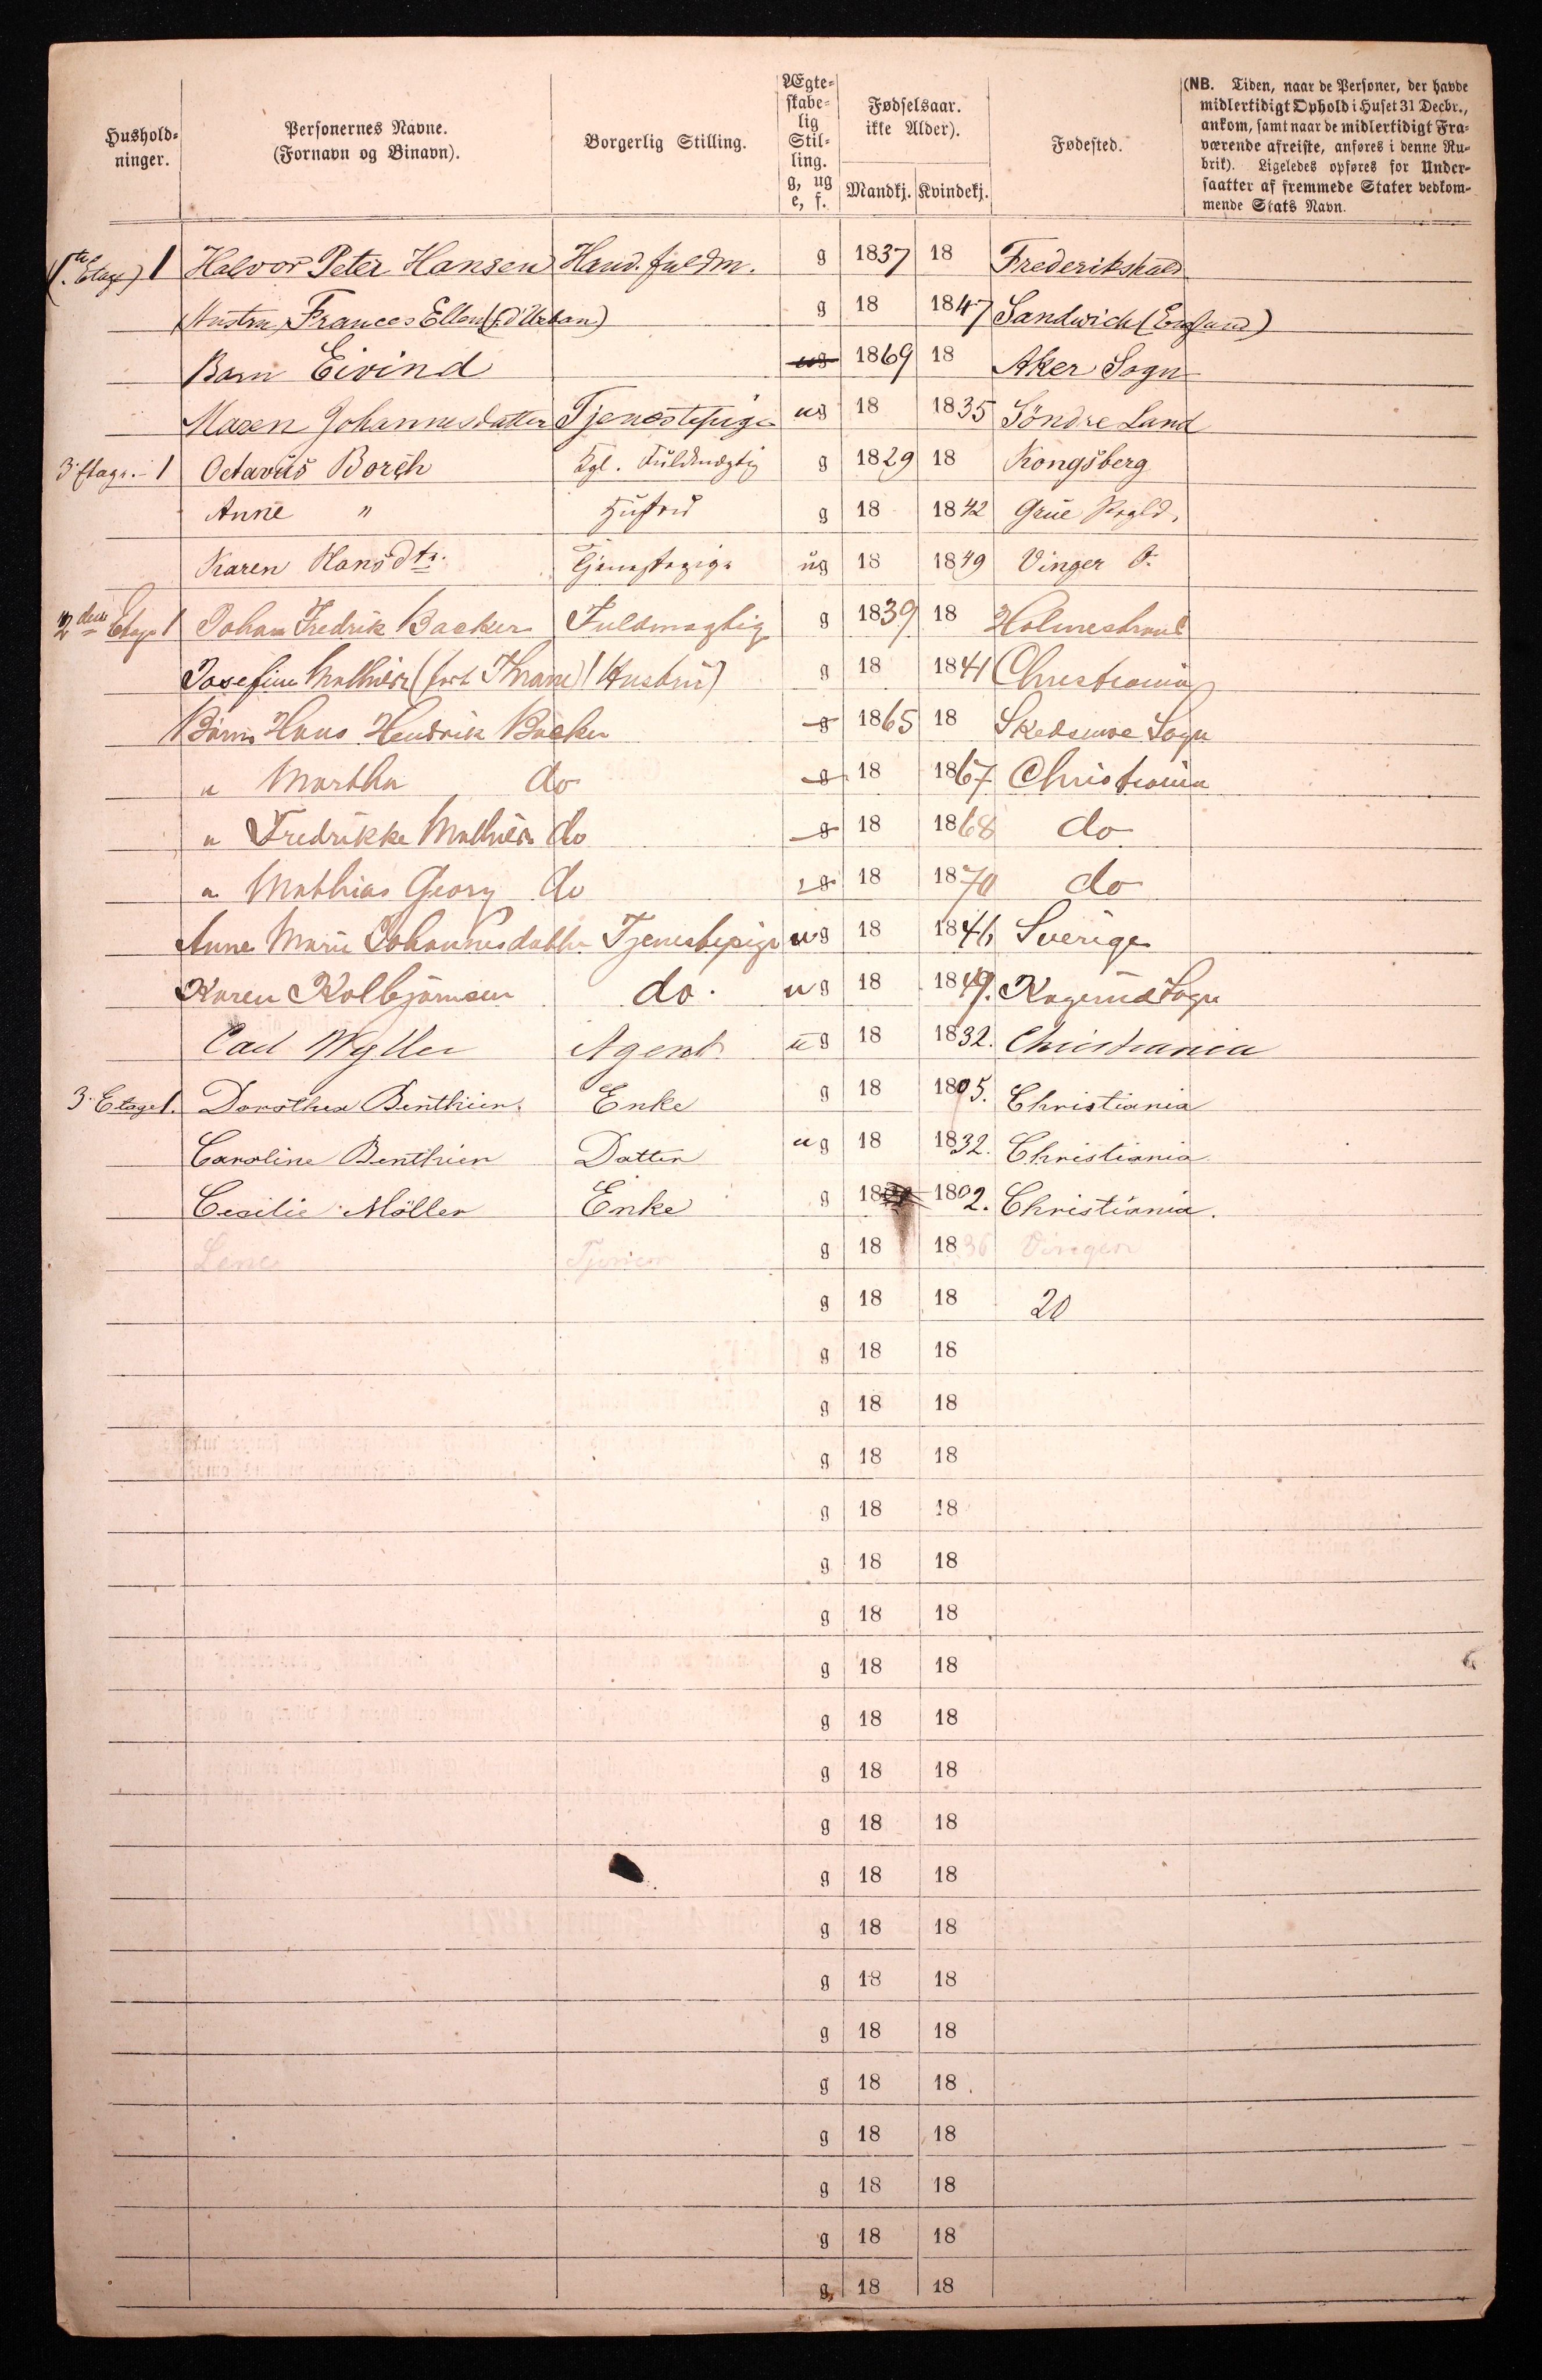 Hushold-
ninger.
Personernes Navne.
(Fornavn og Binavn).
Borgerlig Stilling.
Ægte-
skabe-
lig
Stil-
ling.
g, ug
e, f.
Fødselsaar.
ikke Alder).
Mandkj. Kvindekj.
Fødested.
(NB. Tiden, naar de Personer, der havde
midlertidigt Ophold i Huset 31 Decbr.,
ankom, samt naar de midlertidigt Fra-
værende afreiste, anføres i denne Ru-
brik). Ligeledes opføres for Under-
saatter af fremmede Stater vedkom-
mende Stats Navn.
(1ste Etage) 1 Halvor Peter Hansen Hand. fuldm. g 1837 18 Frederikshald
Hustru, Frances Ellen (f. d'Urban) g 18 1847 Sandwich (England)
Barn Eivind ug 1869 18 Aker Sogn
Maren Johannesdatter Tjenestepige ug 18 1835 Söndre Land
3 Etage. 1 Octavius Borch Kgl. Fuldmægtig g 1829 18 Kongsberg
Anne " Hustru g 18 1842 Grue
Karen Hansdtr. Tjenestepige ug 18 1849 Vinger
2den Etage 1 Johan Fredrik Backer Fuldmægtig g 1839 18 Holmestrand
Josefine Mathiese (født Thrane) (Hustru) g 18 1841 Christiania
Børn Hans Hendrik Backer g 1865 18 Skedsmoe Sogn
" Martha do g 18 1867 Christiania
" Fredrikke Mathiese do g 18 1868 do
" Mathias Georg do g 18 1870 do
Anne Marie Johannesdatter Tjenestepige ug 18 1846 Sverige
Karen Kolbjørnsen do. ug 18 1849. Sogn
Carl Wyller Agent. ug 18 1832. Christiania
3. Etage 1. Dorothea Benthien. Enke g 18 1805. Christiania
Caroline Benthien Datter ug 18 1832. Christiania
Cecilie Möller Enke g 18 1802. Christiania.
Lene Tjener g 18 1836 Vinger
g 18 18 20
g 18 18
g 18 18
g 18 18
g 18 18
g 18 18
g 18 18
g 18 18
g 18 18
g 18 18
g 18 18
g 18 18
g 18 18
g 18 18
g 18 18
g 18 18
g 18 18
g 18 18
g 18 18
g 18 18